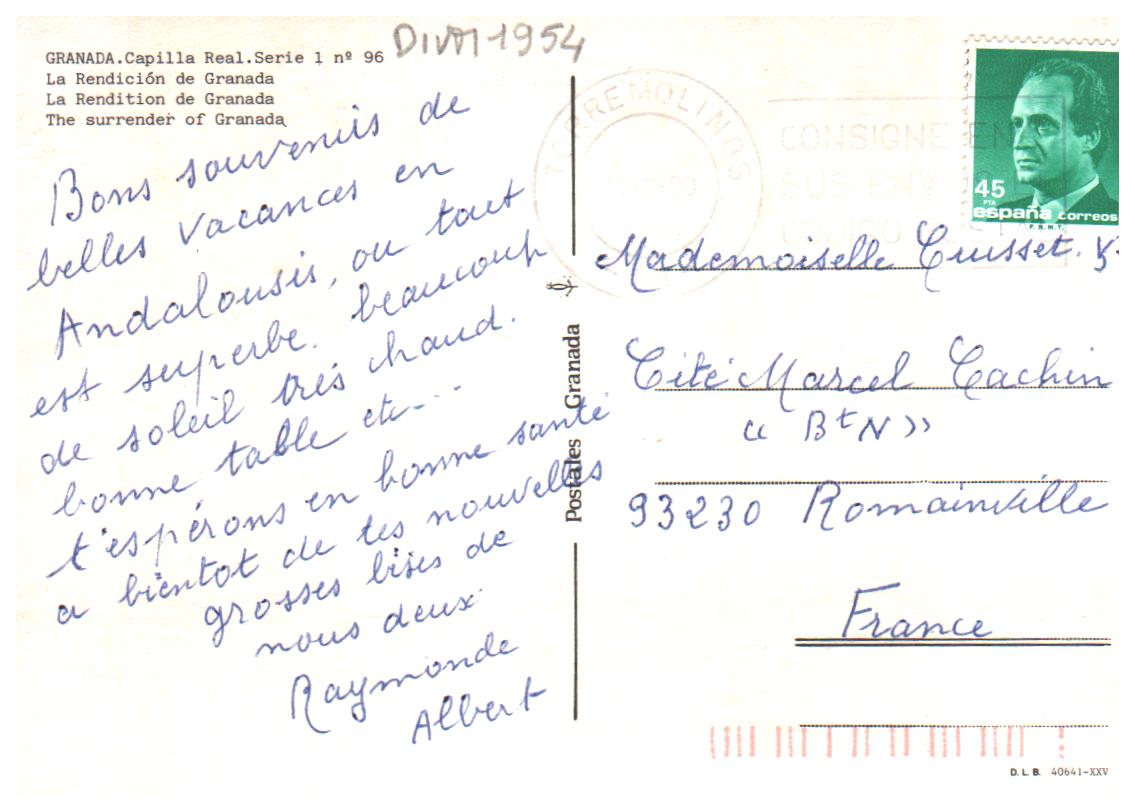 DIVAI-1954
GRANADA.Capilla Real.Serie 1 nº 96
La Rendición de Granada
La Rendition de Granada
The surrender of Granada
Bons souvenirs de
belles vacances en
Andalousis, ou tout
est superbe. beaucoup
de soleil très chaud.
bonne table etc-...
t'espérons en bonne santé
a bientot de tes nouvelles
grosses bises de
nous deux
Raymonde
Albert
Postales Granada
TORREMOLINOS
CONSIGNE EN
SUS ENVIOS EL
CODIGO POSTAL
45
PTA
españa correos
F.N.M.T.
Mademoiselle Cuisset.
Cité Marcel Cachin
« Bt N »
93230 Romainville
France
D.L.B. 40641-XXV